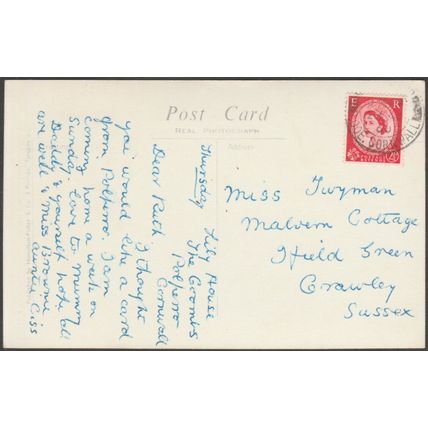 Post Card
REAL PHOTOGRAPH
Address
Lily House
Thursday The Coombs
Polperro
Cornwall
Dear Ruth I thought
you would like a card
from Polperro. I am
coming home a week on
Sunday. Love to Mummy
Daddy & yourself hope all
are well & Miss Browne
Auntie Ciss
E R
POSTAGE
CORNWALL
Miss Twyman
Malvern Cottage
Ifield Green
Crawley
Sussex